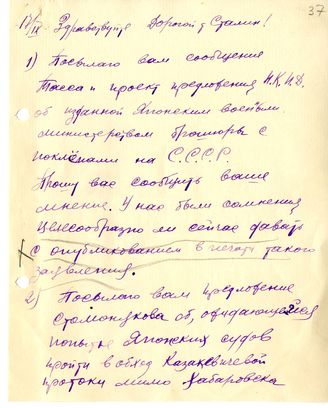 37
17/IX Здравствуйте Дорогой т. Сталин!
1) Посылаю вам сообщение
Тасса и проект предложения Н.К.И.Д.
об изданной Японским военным
министерством брошюры с
поклёпами на С.С.С.Р.
Прошу вас сообщить ваше
мнение. У нас были сомнения
целесообразно ли сейчас давать
с опубликованием в печати такого
заявления.
2) Посылаю вам предложение
Стомонякова об, ожидающейся
попытке Японских судов
пройти в обход Казакевичевой
протоки мимо Хабаровска